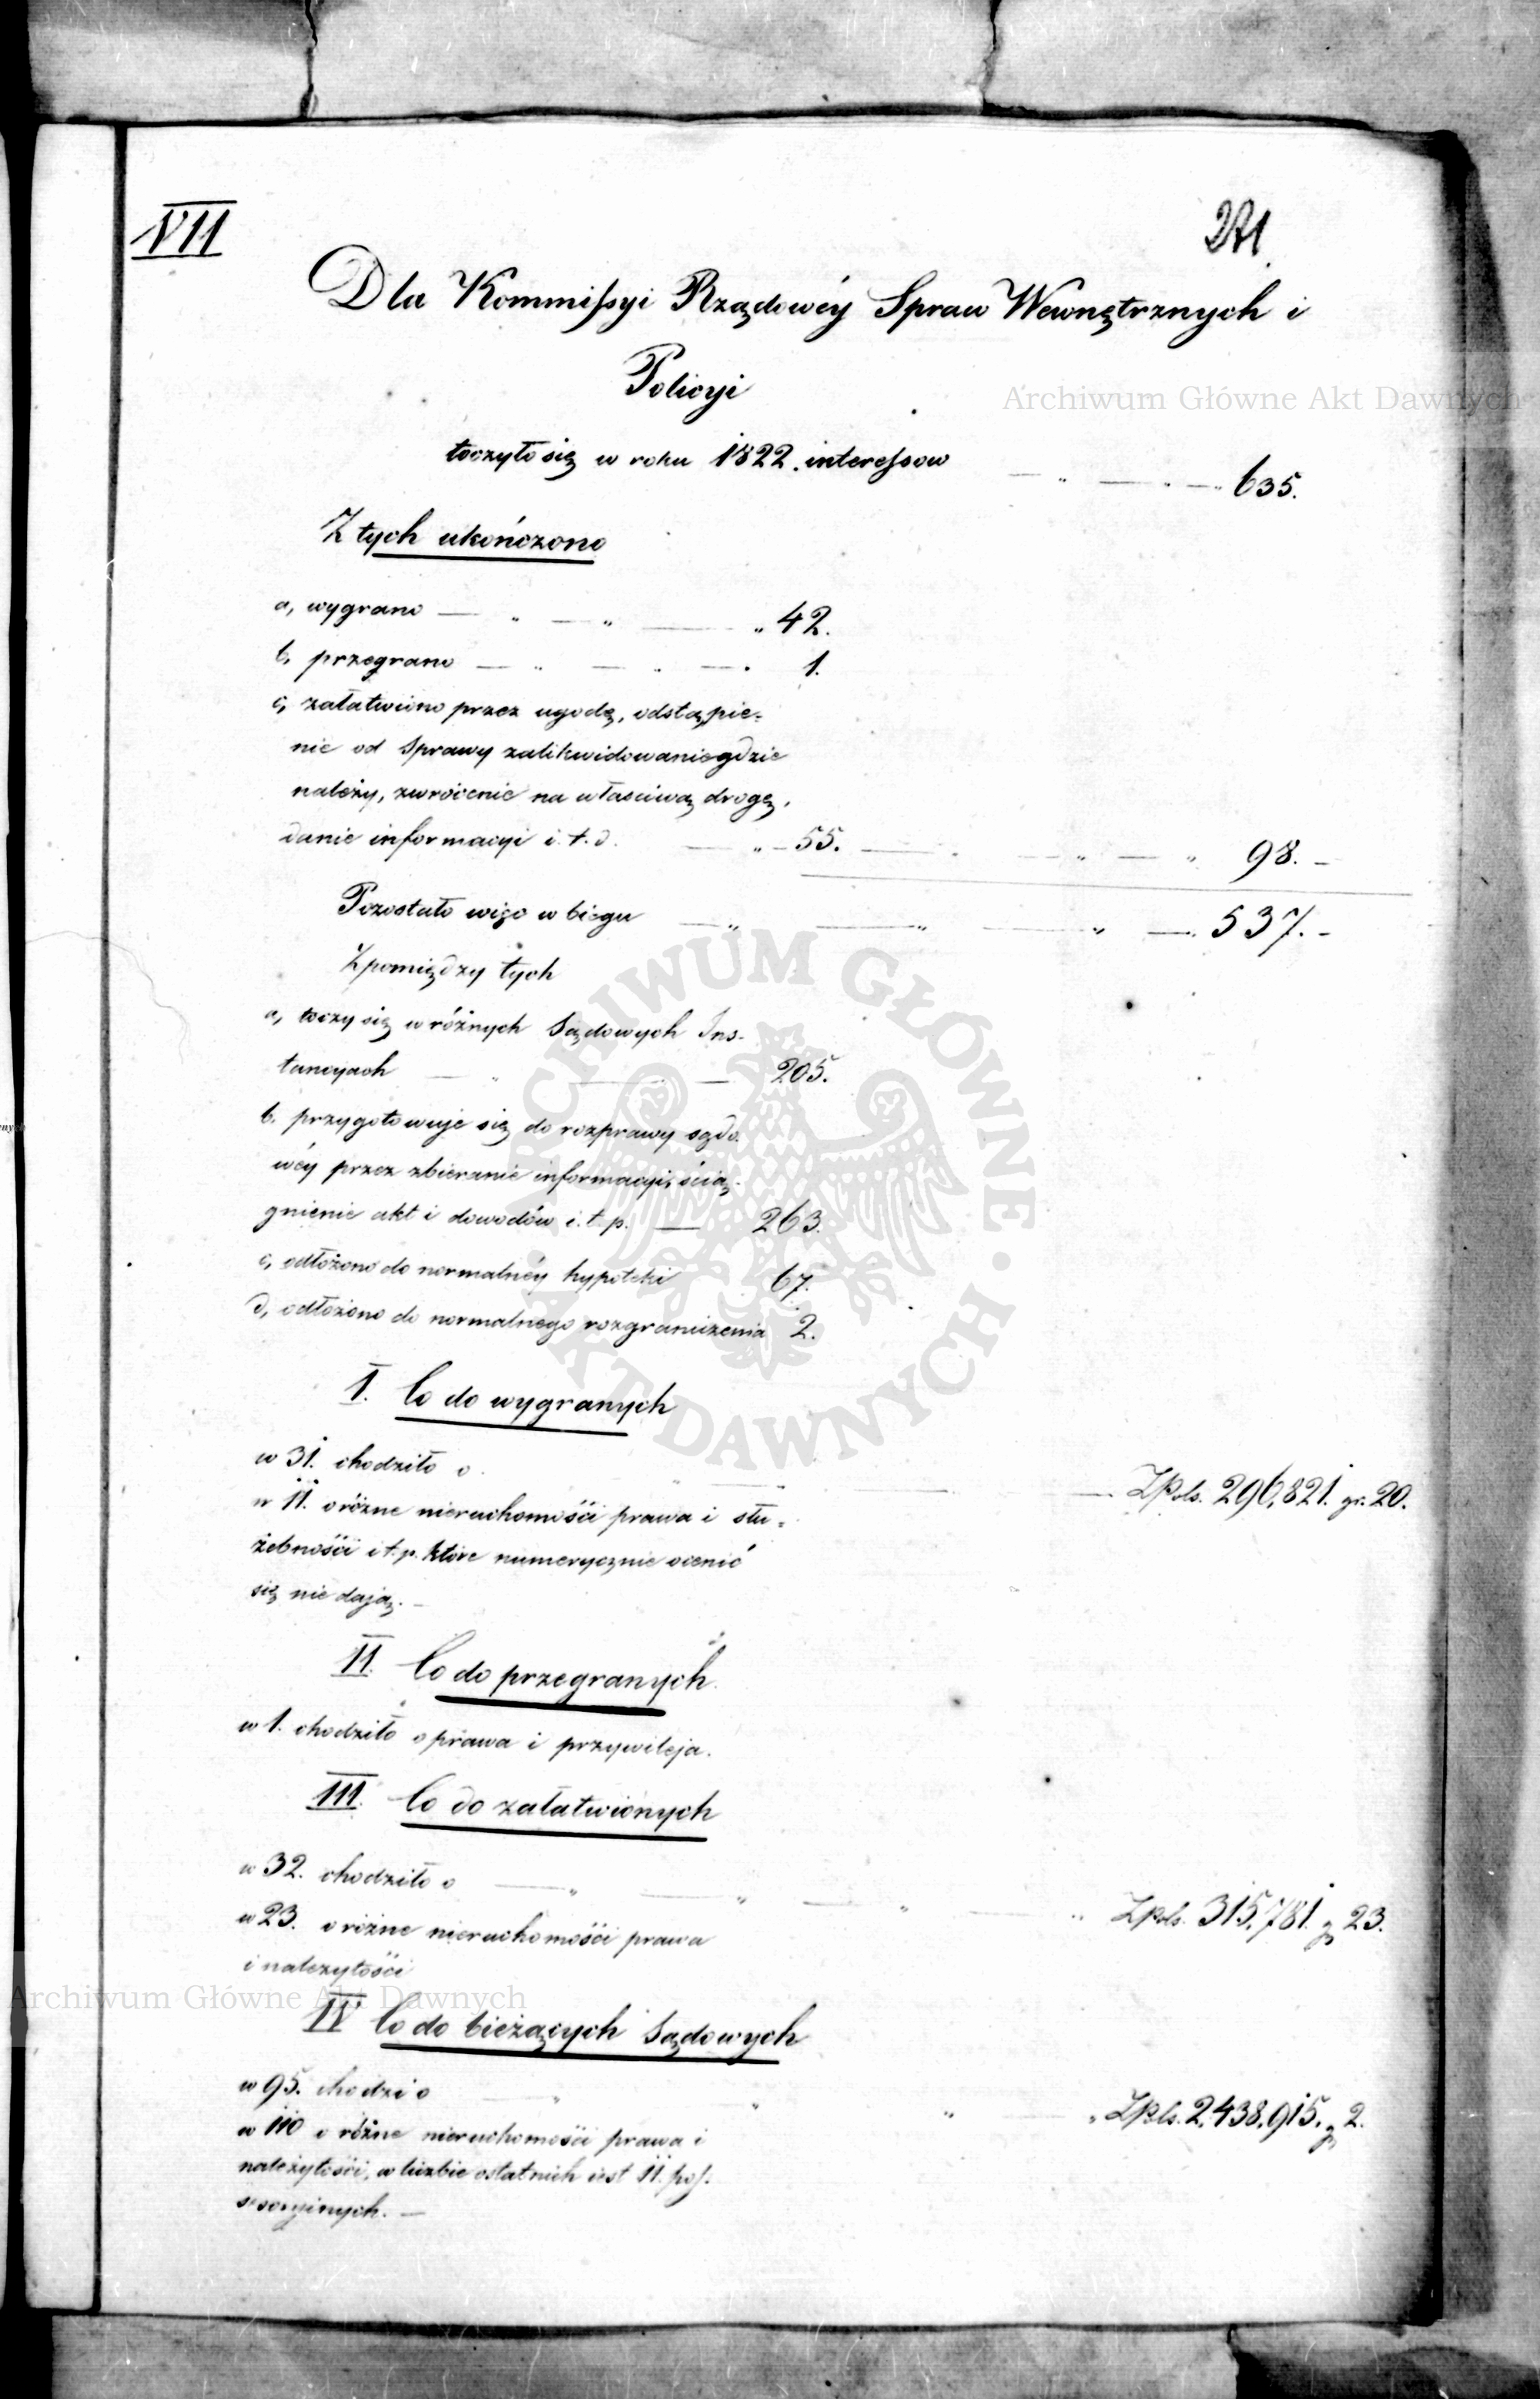 VII
271
Dla Kommissyi Rządowéy Spraw Wewnętrznych i
Policyi
Archiwum Główne Akt Dawnych
toczyło się w roku 1822. interessow — „ — „ — „ 635.
Z tych ukończono
a, wygrano — „ — „ — „ 42.
b, przegrano — „ — „ — . 1.
c, załatwiono przez ugodę, odstąpie=
nie od sprawy zalikwidowanie gdzie
należy, zwrócenie na właściwą drogę,
danie informacyi i. t. d. — „ — 55. — „ — „ — „ 98. —
Pozostało więc w biegu — „ — „ — „ — 537. —
Z pomiędzy tych
a, toczy się w różnych Sądowych Ins-
tancyach — „ — — 205.
b, przygotowuje się do rozprawy sądo-
wéy przez zbieranie informacyi, ścią-
gnienie akt i dowodów i. t. p. — 263.
c, odłożono do normalnéy hypoteki 67.
d, odłożono do normalnego rozgraniczenia 2.
ARCHIWUM GŁÓWNE · AKT DAWNYCH ·
I. Co do wygranych
w 31. chodziło o „ — „ — ZPols. 296,821. gr. 20.
w 11. o różne nieruchomości prawa i słu=
żebności i t. p. które numerycznie ocenić
się nie dają. —
II. Co do przegranych.
w 1. chodziło o prawa i przywileja.
III. Co do załatwionych
w 32. chodziło o — „ — „ — „ — „ ZPols. 315,781. gr 23.
w 23. o różne nieruchomości prawa
i należytości
Archiwum Główne Akt Dawnych
IV Co do bieżących Sądowych
w 95. chodzi o — „ — „ — „ — „ ZPols. 2,438,915. gr 2.
w 110 o różne nieruchomości prawa i
należytości, w liczbie ostatnich iest 11. pos-
sessoryinych. —